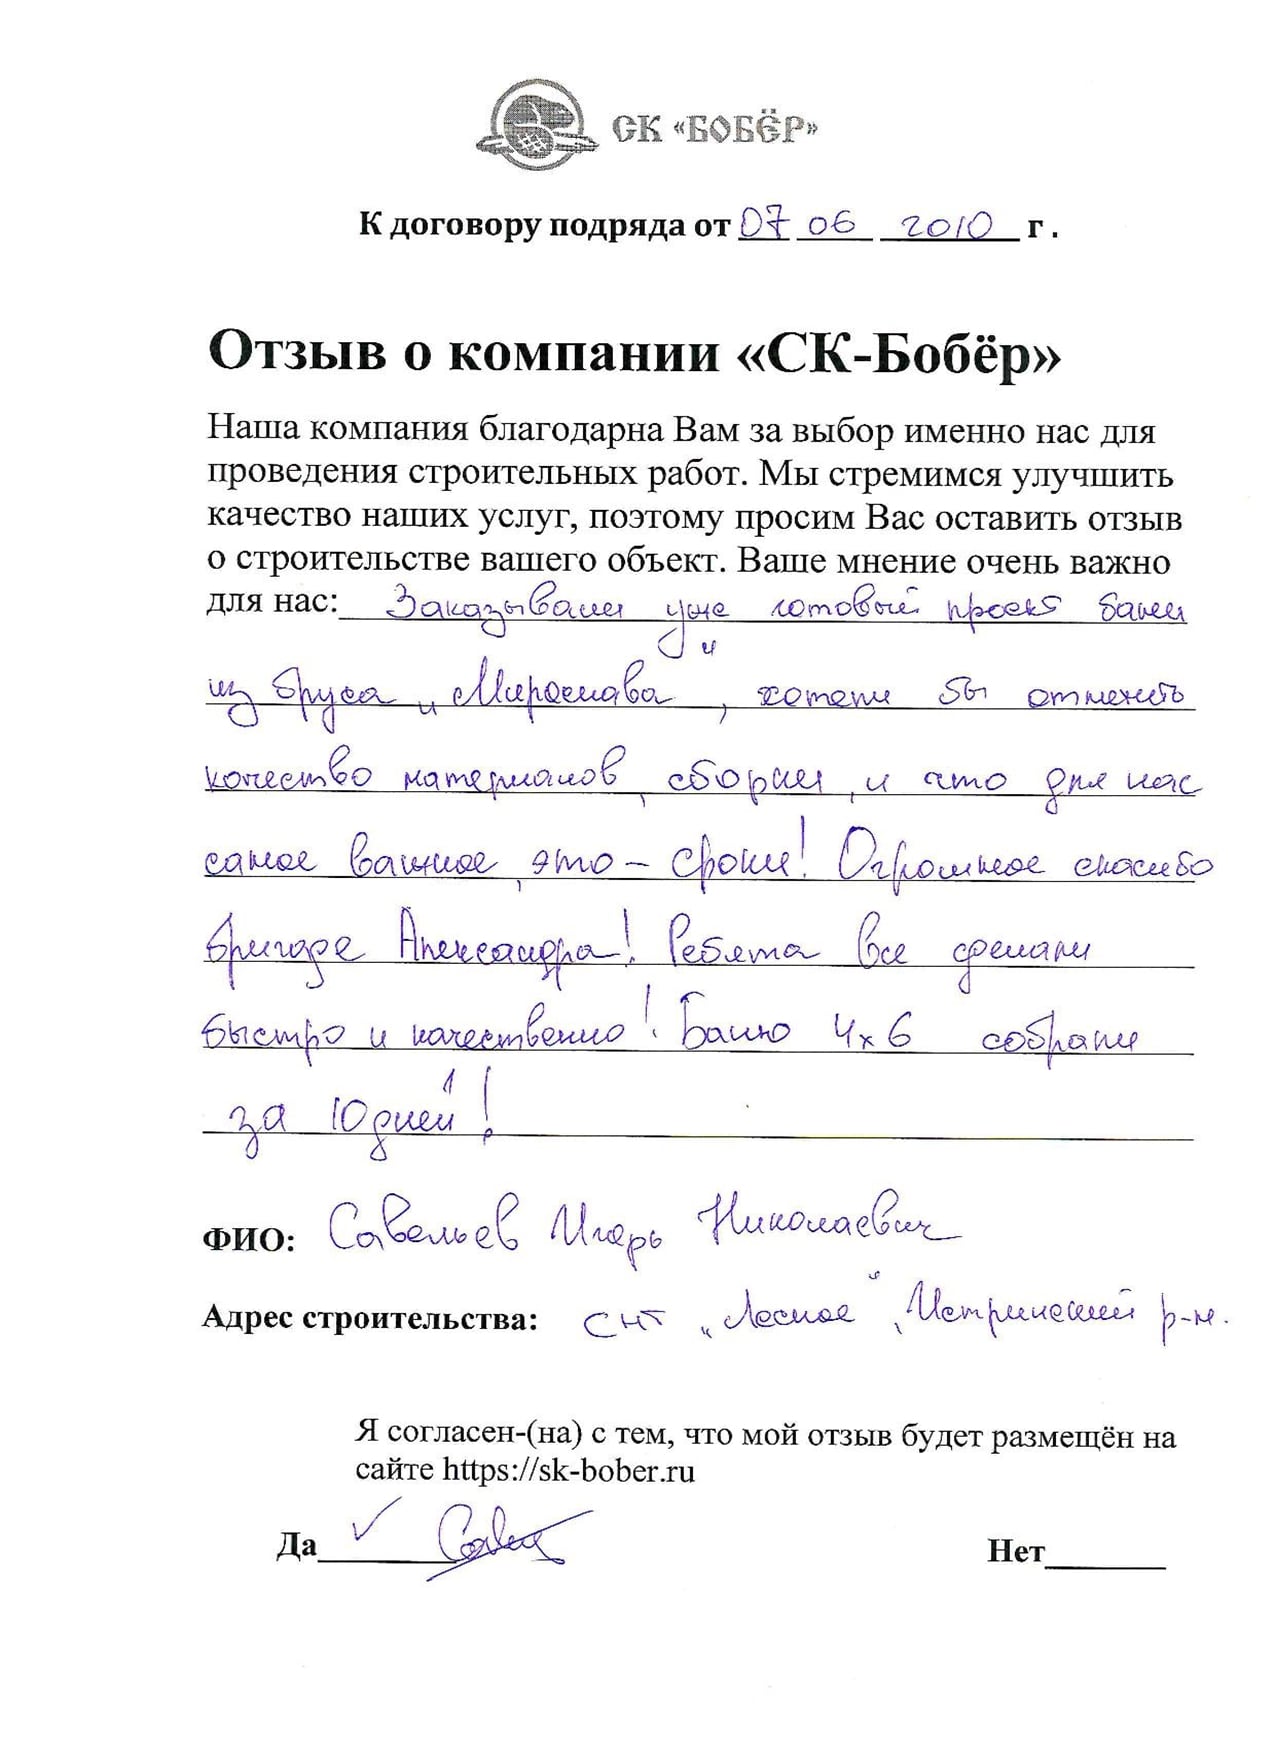 СК «БОБЁР»
К договору подряда от 07 06 2010 г .
Отзыв о компании «СК-Бобёр»
Наша компания благодарна Вам за выбор именно нас для
проведения строительных работ. Мы стремимся улучшить
качество наших услуг, поэтому просим Вас оставить отзыв
о строительстве вашего объект. Ваше мнение очень важно
для нас: Заказывали уже готовый проект бани
из бруса „Мирослава“, хотели бы отметить
качество материалов, сборки, и что для нас
самое важное, это – сроки! Огромное спасибо
бригаде Александра! Ребята все сделали
быстро и качественно! Баню 4х6 собрали
за 10 дней!
ФИО: Савельев Игорь Николаевич
Адрес строительства: СНТ „Лесное“, Истринский р-н.
Я согласен-(на) с тем, что мой отзыв будет размещён на
сайте https://sk-bober.ru
Да ✓ Нет